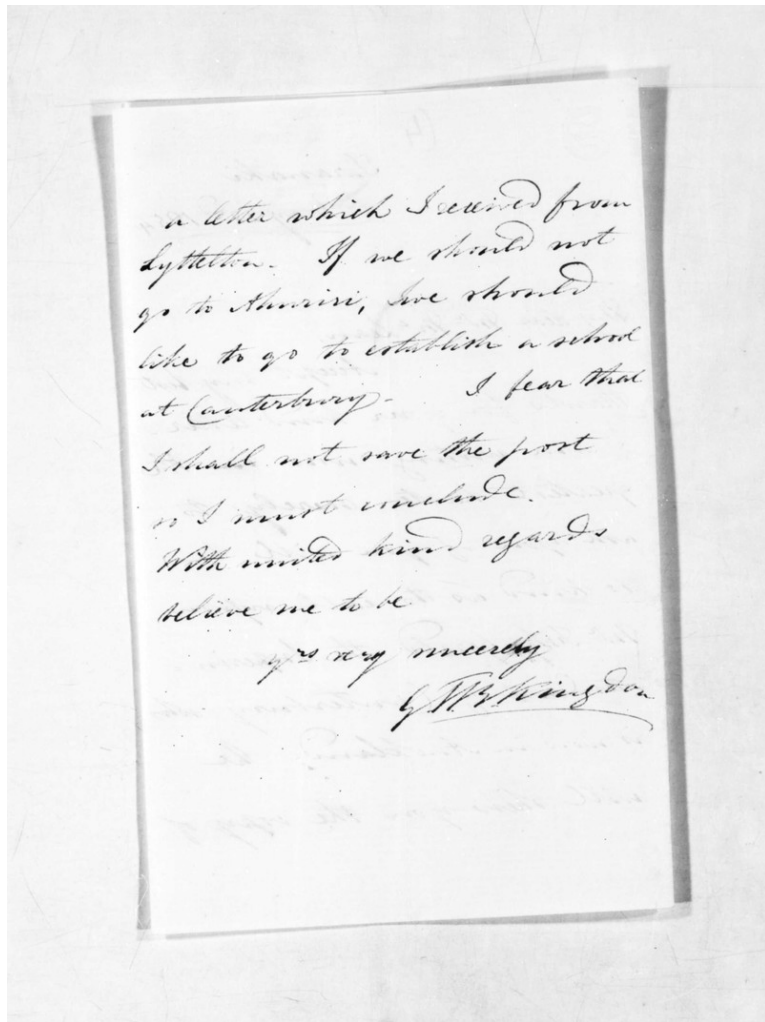 a letter which I received from
Lyttelton. If we should not
go to Ahuriri, we should
like to go to establish a school
at Canterbury. I fear that
I shall not save the post
so I must conclude.
With united kind regards
believe me to be
yrs very sincerely
Kingdon